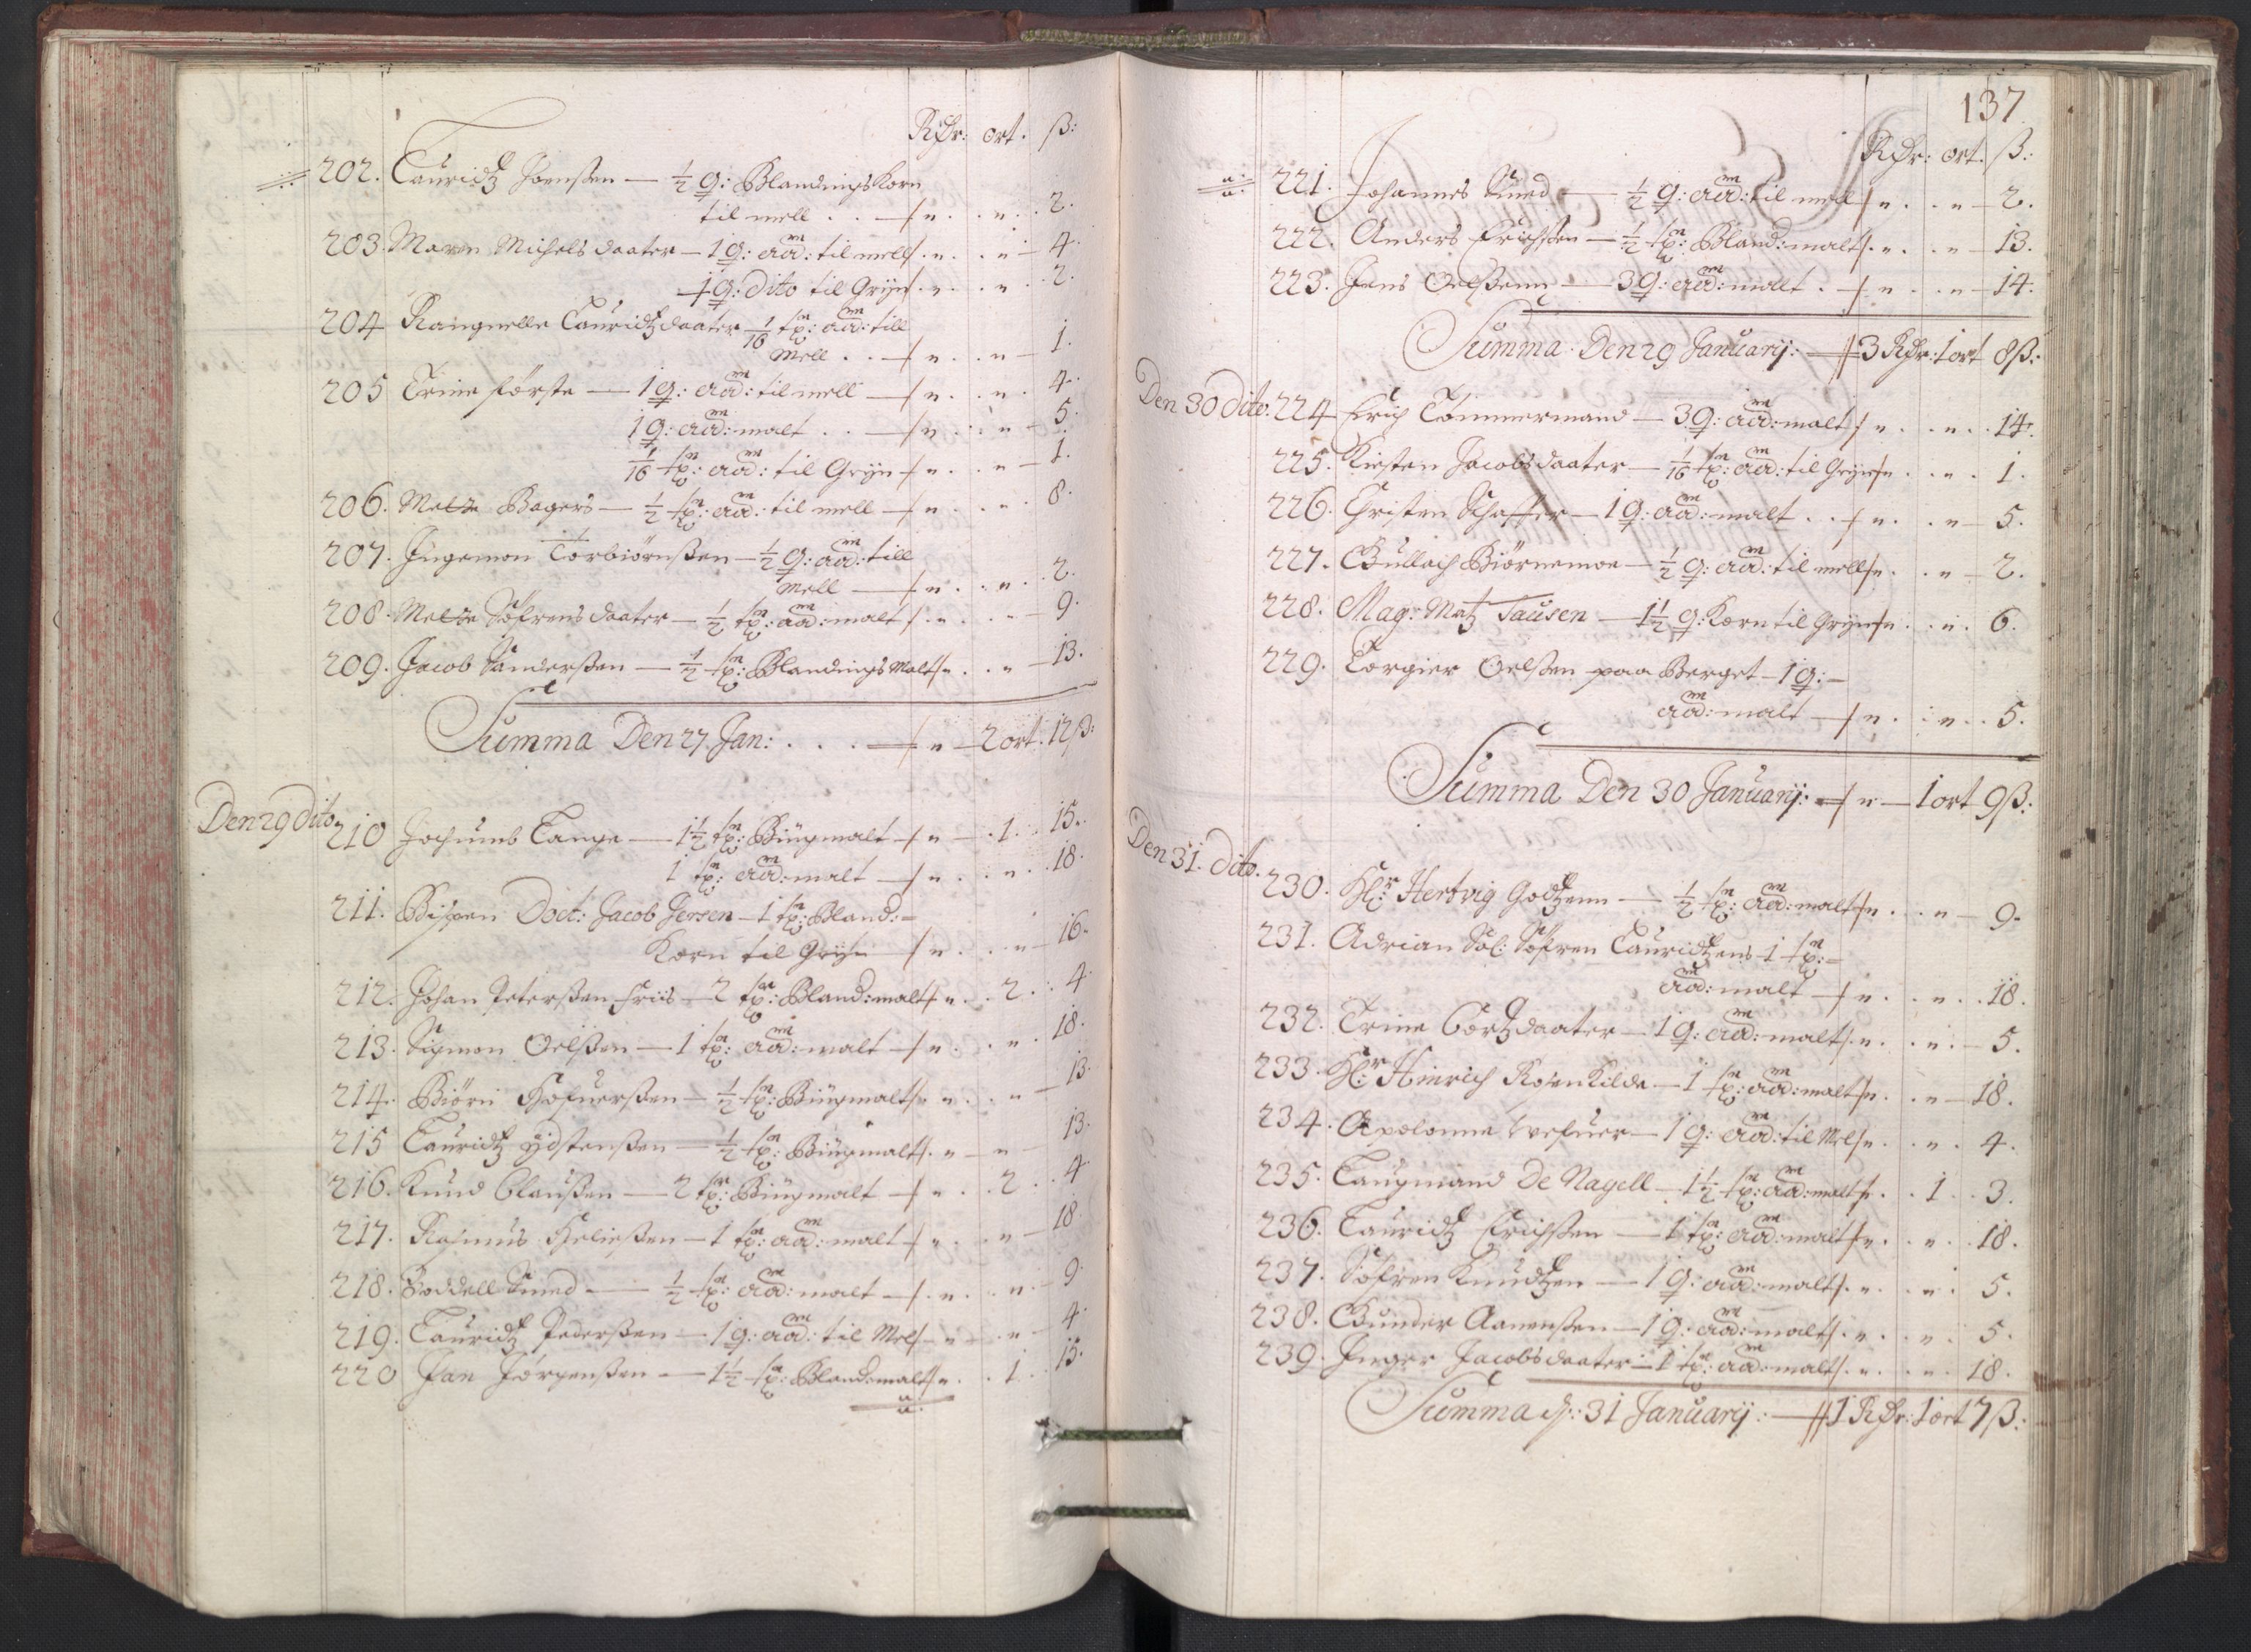 Rdr: ort. ß:
202. Lauridtz Joenßen — ½ q: Blandings Korn
til mell . . — n . . n . . 2.
203. Maren Michels daater — 1 q: aad: til mell n . . n — 4.
1 q: dito til Gryn n . . n . . 2.
204 Rangnelle Lauridtzdaater 1/16 tp: aad: till
Mell . . — n . . n — 1.
205 Trine første — 1 q: aad: til mell — n . . n . 4.
1 q: aad: malt . . — n . . n — 5.
1/16 tp: aad: til Gryn n . . n — 1.
206. Mette Bagers — ½ tp: aad: til mell — n . . n . 8.
207. Ingemon Torbiörnßen — ½ q: aad: till
Mell — n . . n . . 2.
208. Mette Söfrens daater — ½ tp: aad: malt n . . n — 9.
209. Jacob Sanderßen — ½ tp: Blandings Malt n . . n — 13.
Summa Den 27. Jan: . . . — n — 2 ort. 12 ß:
Den 29 Dito.
210 Jochumb Lange — 1½ tp: Bÿgmalt n — . 1 . . 15.
1 tp: aad: malt — n . . n . . 18.
211. Bispen Doct: Jacob Jersen — 1 tp: Bland: =
Korn til Gryn — n . . n — 16.
212. Johan Peterßen Friis — 2 tp: Bland: malt n . . 2 . . 4
213. Sigmon Oelßen — 1 tp: aad: malt — n . . n . 18.
214. Biörn — ½ tp: Bÿgmalt n . . n — 13.
215 Lauridtz ÿdstenßen — ½ tp: Bÿgmalt n — n — 13.
216. Knud Claußen — 2 tp: Bÿgmalt — n . . 2 . . 4
217. Rasmus Heließen — 1 tp: aad: malt n . . n — 18.
218. Boddell Smed — ½ tp: aad: malt — n . . n — 9.
219. Lauridtz Pederßen — 1 q: aad: til Mel — n . . n — 4.
220 Jan Jörgenßen — 1½ tp: Bland: malt n . . 1 . . 15.
137
Rdr: ort. ß:
221. Johannes Smed — ½ q: aad: til mell n . . n — 2.
222. Anders Erichßen — ½ tp: Bland: malt n . . n — 13.
223. Jens Oelßenn — 3 q: aad: malt . — n . . n — 14.
Summa. Den 29 Januarij: — 3 Rdr: 1 ort 8 ß:
Den 30 Dito. 224 Erich Tömmermand — 3 q: aad: malt n . . n . . 14.
225. Kirsten Jacobsdaater — 1/16 tp: aad: til Gryn n . . n . 1.
226. Christen Schaffer — 1 q: aad: malt . . n . . n — 5.
227. Gullach Biörnemoe — ½ q: aad: til mell n . . n — 2.
228. Mag: Matz Tausen — 1½ q: Korn til Gryn n . . n . 6.
229. Torgier Oelßen paa Berget — 1 q: —
aad: malt — n . . n . . 5.
Summa Den 30 Januarij: — n — 1 ort 9 ß:
Den 31. Dito.
230. Hr: Hertvig Godtzenn — ½ tp: aad: malt n . . n — 9.
231. Adrian Sal: Söfren Lauridtzens 1 tp: =
aad: malt — n . . n . . 18.
232. Trine Cortzdaater — 1 q: aad: malt n . . n . — 5.
233. Hr: Hinrich Rosenkilde — 1 tp: aad: malt n . . n — 18.
234. Apolonne — 1 q: aad: til Mel n . . n . 4.
235. Laugmand De Nagell — 1½ tp: aad: malt n . . 1 . . 3.
236. Lauridtz Erichßen — 1 tp: aad: malt n . . n . . 18.
237. Söfren Knudtzen — 1 q: aad: malt n . . n . 5.
238. Gunder Aanenßen — 1 q: aad: malt n . . n . 5.
239. Inger Jacobsdaater — 1 tp: aad: malt n . . n . 18.
Summa d: 31 Januarij: — 1 Rdr: 1 ort 7 ß: